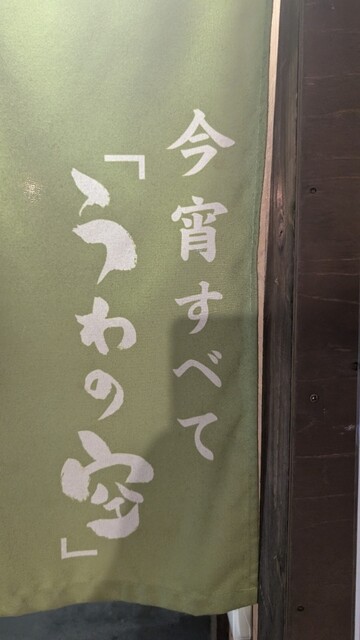 今宵すべて
「うわの空」